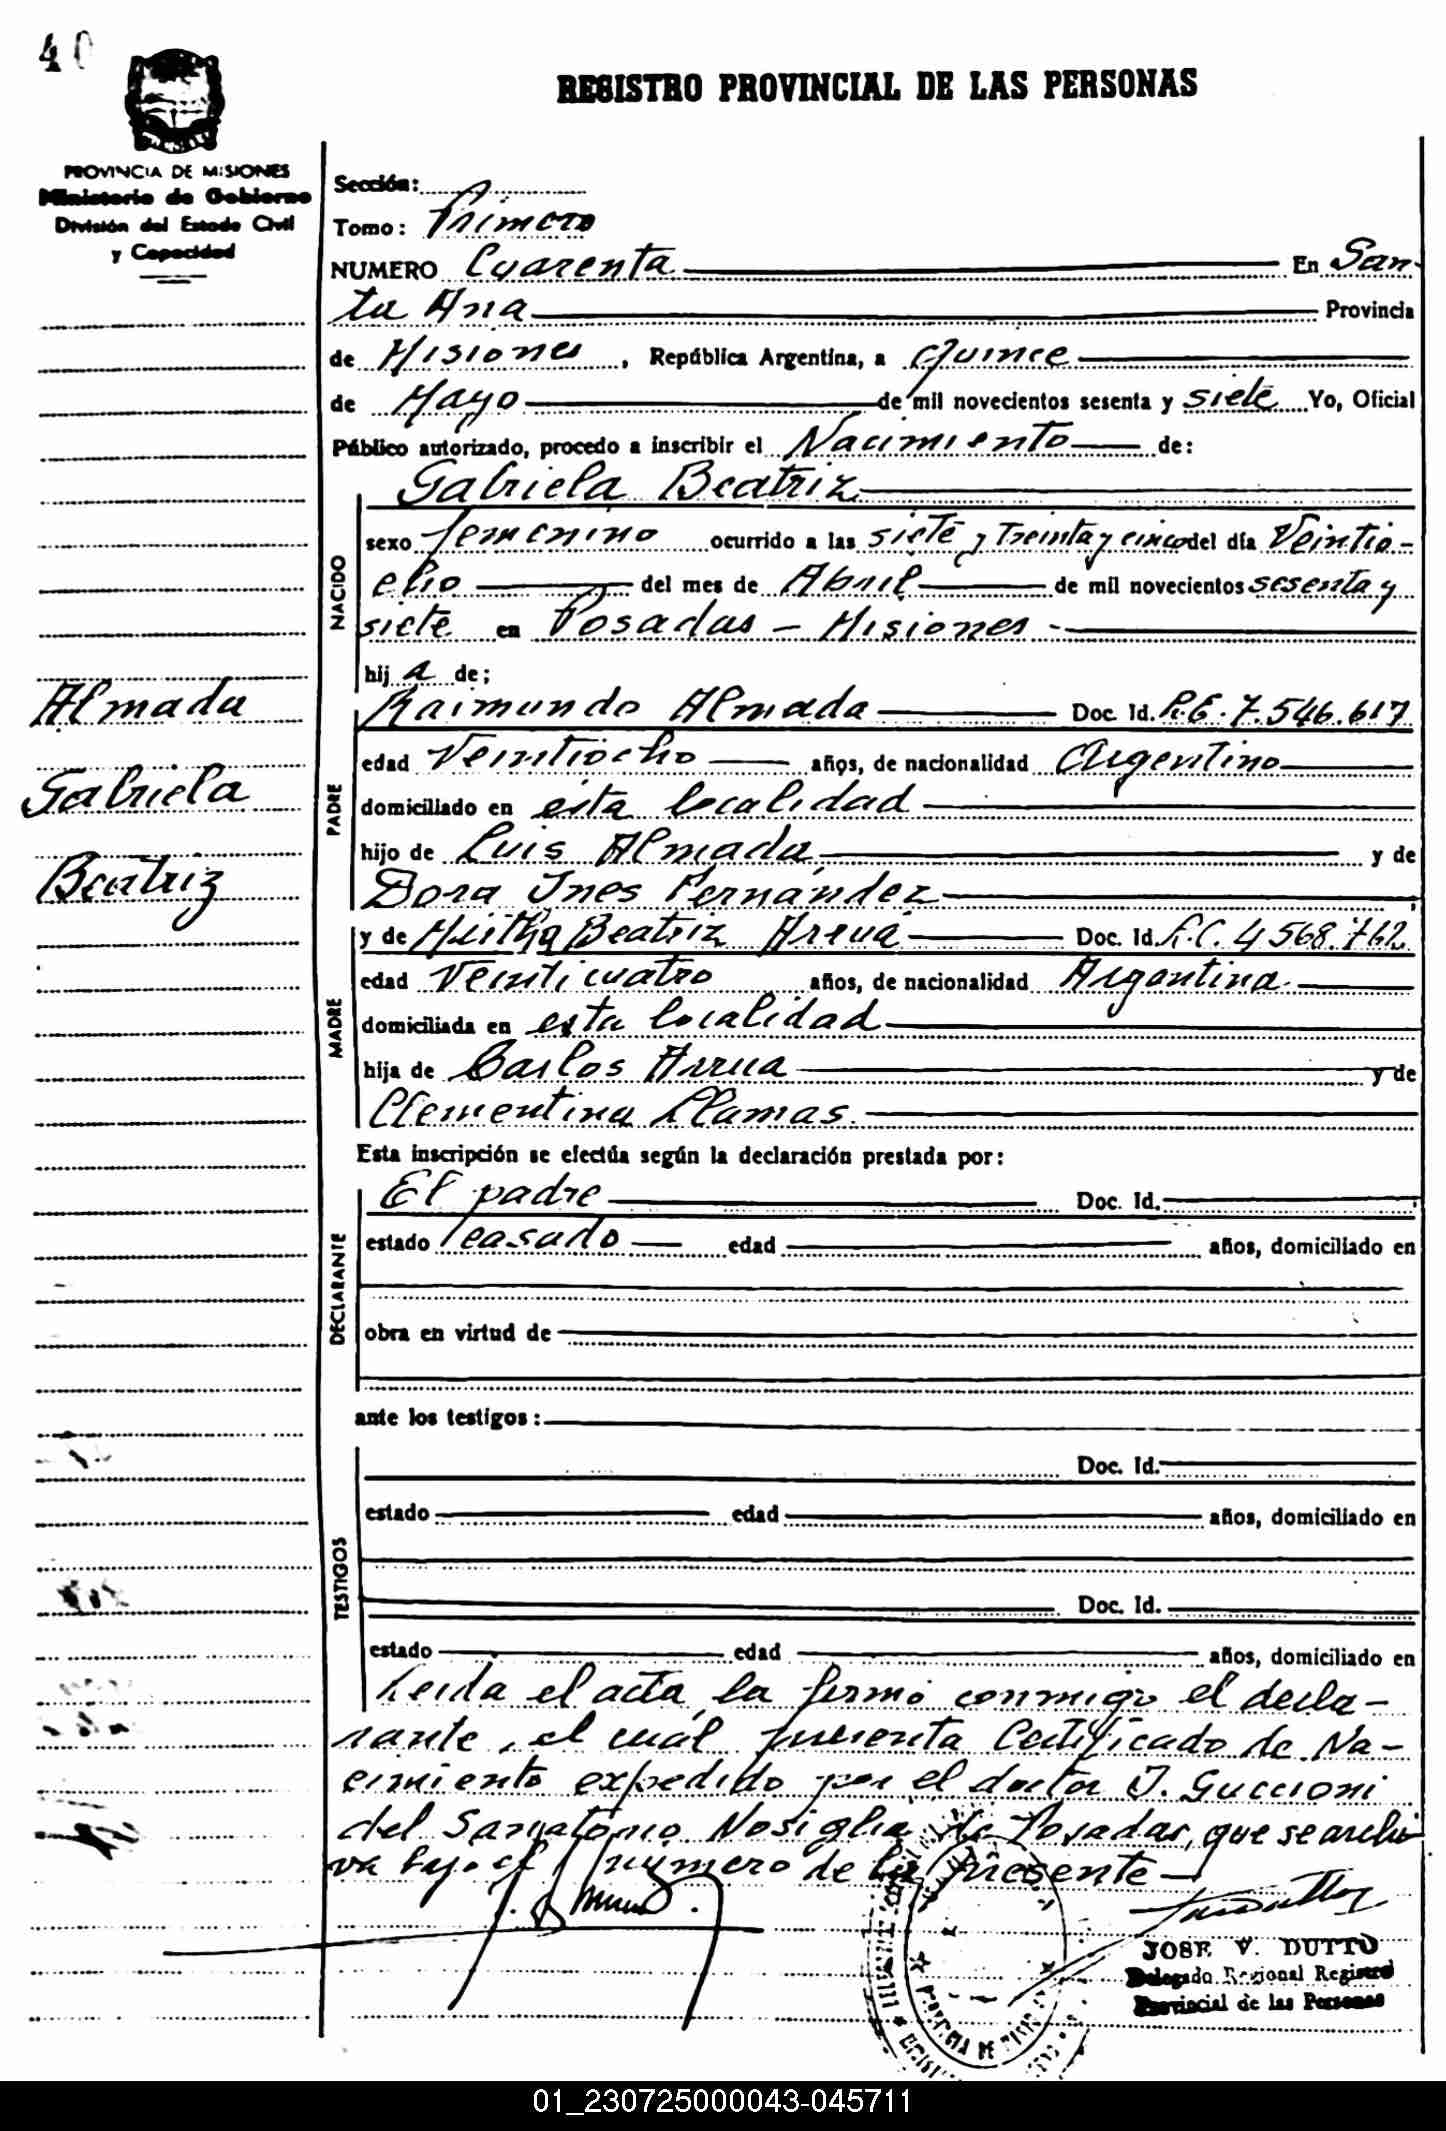 40
REGISTRO PROVINCIAL DE LAS PERSONAS
PROVINCIA DE MISIONES
Ministerio de Gobierno
División del Estado Civil
y Capacidad
Sección:
Tomo: Primero
NUMERO Cuarenta En San-
ta Ana Provincia
de Misiones, República Argentina, a quince
de Mayo de mil novecientos sesenta y siete Yo, Oficial
Público autorizado, procedo a inscribir el Nacimiento de:
Gabriela Beatriz
NACIDO
sexo femenino ocurrido a las siete y treinta y cinco del día Veintio-
cho del mes de Abril de mil novecientos sesenta y
siete en Posadas - Misiones -
hij a de;
Almada
Gabriela
Beatriz
PADRE
Raimundo Almada Doc. Id. 7.546.617
edad Veintiocho años, de nacionalidad Argentino
domiciliado en esta localidad
hijo de Luis Almada y de
Dora Ines Fernández
MADRE
y de Beatriz Doc. Id. 4.568.762
edad Veinticuatro años, de nacionalidad Argentina.
domiciliada en esta localidad
hija de Carlos Arrua y de
Clementina Llamas.
Esta inscripción se efectúa según la declaración prestada por:
DECLARANTE
El padre Doc. Id.
estado casado edad años, domiciliado en
obra en virtud de
ante los testigos:
TESTIGOS
Doc. Id.
estado edad años, domiciliado en
Doc. Id.
estado edad años, domiciliado en
Leída el acta, la firmó conmigo el decla-
rante, el cuál presenta Certificado de Na-
cimiento expedido por el doctor J. Guccioni
del Sanatorio Nosiglia de Posadas, que se archi
va bajo el número de la presente
JOSE V. DUTTO
Delegado Regional Registro
Provincial de las Personas
01_230725000043-045711